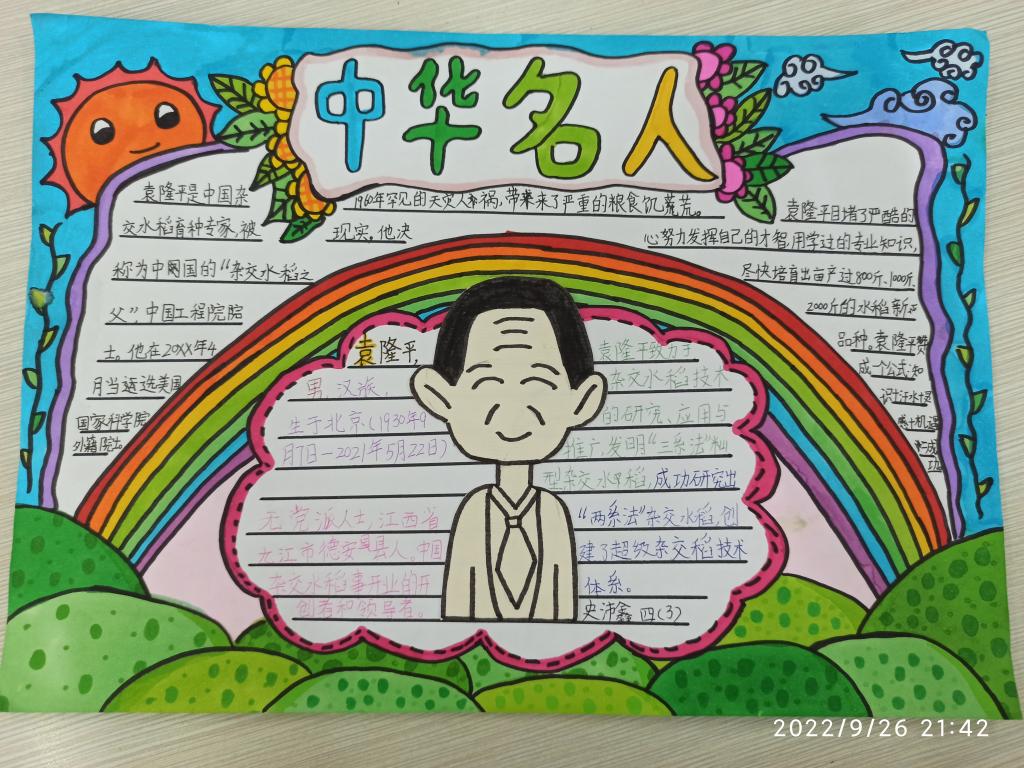 中华名人
袁隆平是中国杂
交水稻育种专家,被
称为中国的“杂交水稻之
父”,中国工程院院
士。他在20XX年4
月当选美国
国家科学院
外籍院士。
1960年罕见的天灾人祸,带来了严重的粮食饥荒。
现实,他决
袁隆平目堵了严酷的
心努力发挥自己的才智,用学过的专业知识,
尽快培育出亩产过800斤、1000斤
2000斤的水稻新
品种,袁隆平赞
成一个公式:知
识+汗水+灵
感+机遇
=成
功
袁隆平,
男,汉族,
生于北京(1930年9
月7日-2021年5月22日)
无党派人士,江西省
九江市德安县人。中国
杂交水稻事开业的开
创者和领导者。
袁隆平致力于
杂交水稻技术
的研究、应用与
推广,发明“三系法”籼
型杂交水稻,成功研究出
“两系法”杂交水稻,创
建了超级杂交稻技术
体系。
史沛鑫 四(3)
2022/9/26 21:42